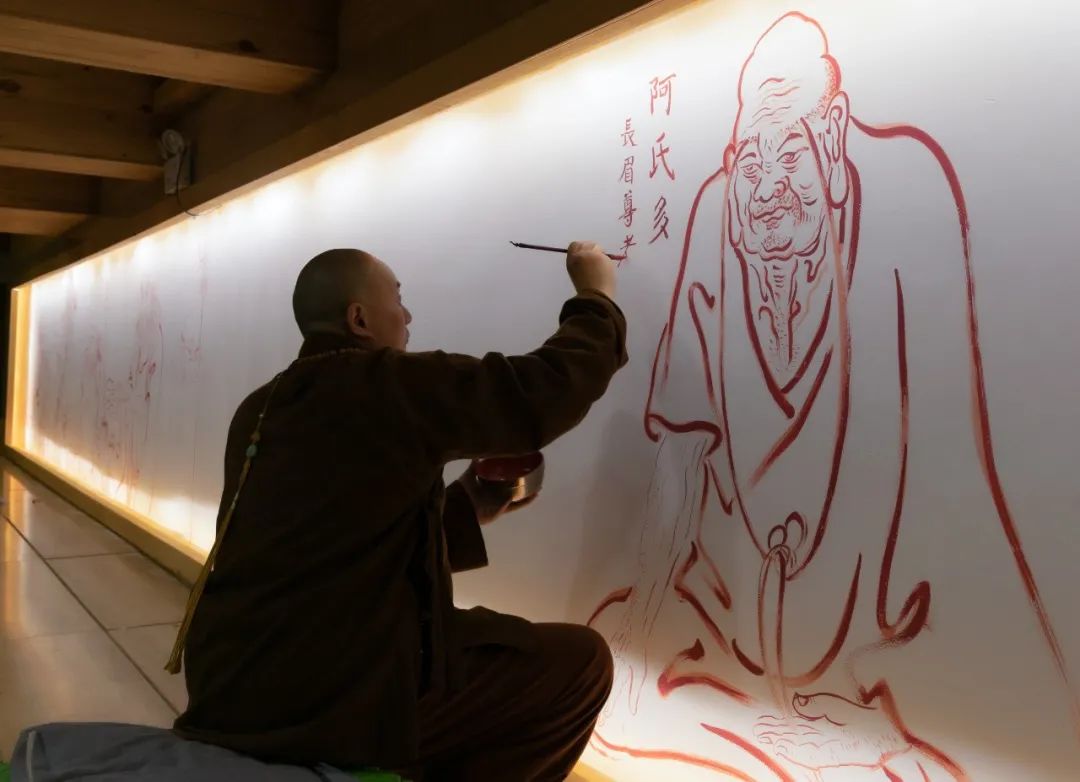 阿氏多
長眉尊者